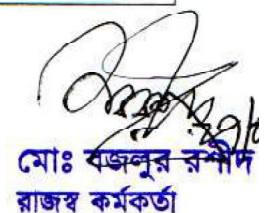 মোঃ বজলুর রশীদ
রাজস্ব কর্মকর্তা